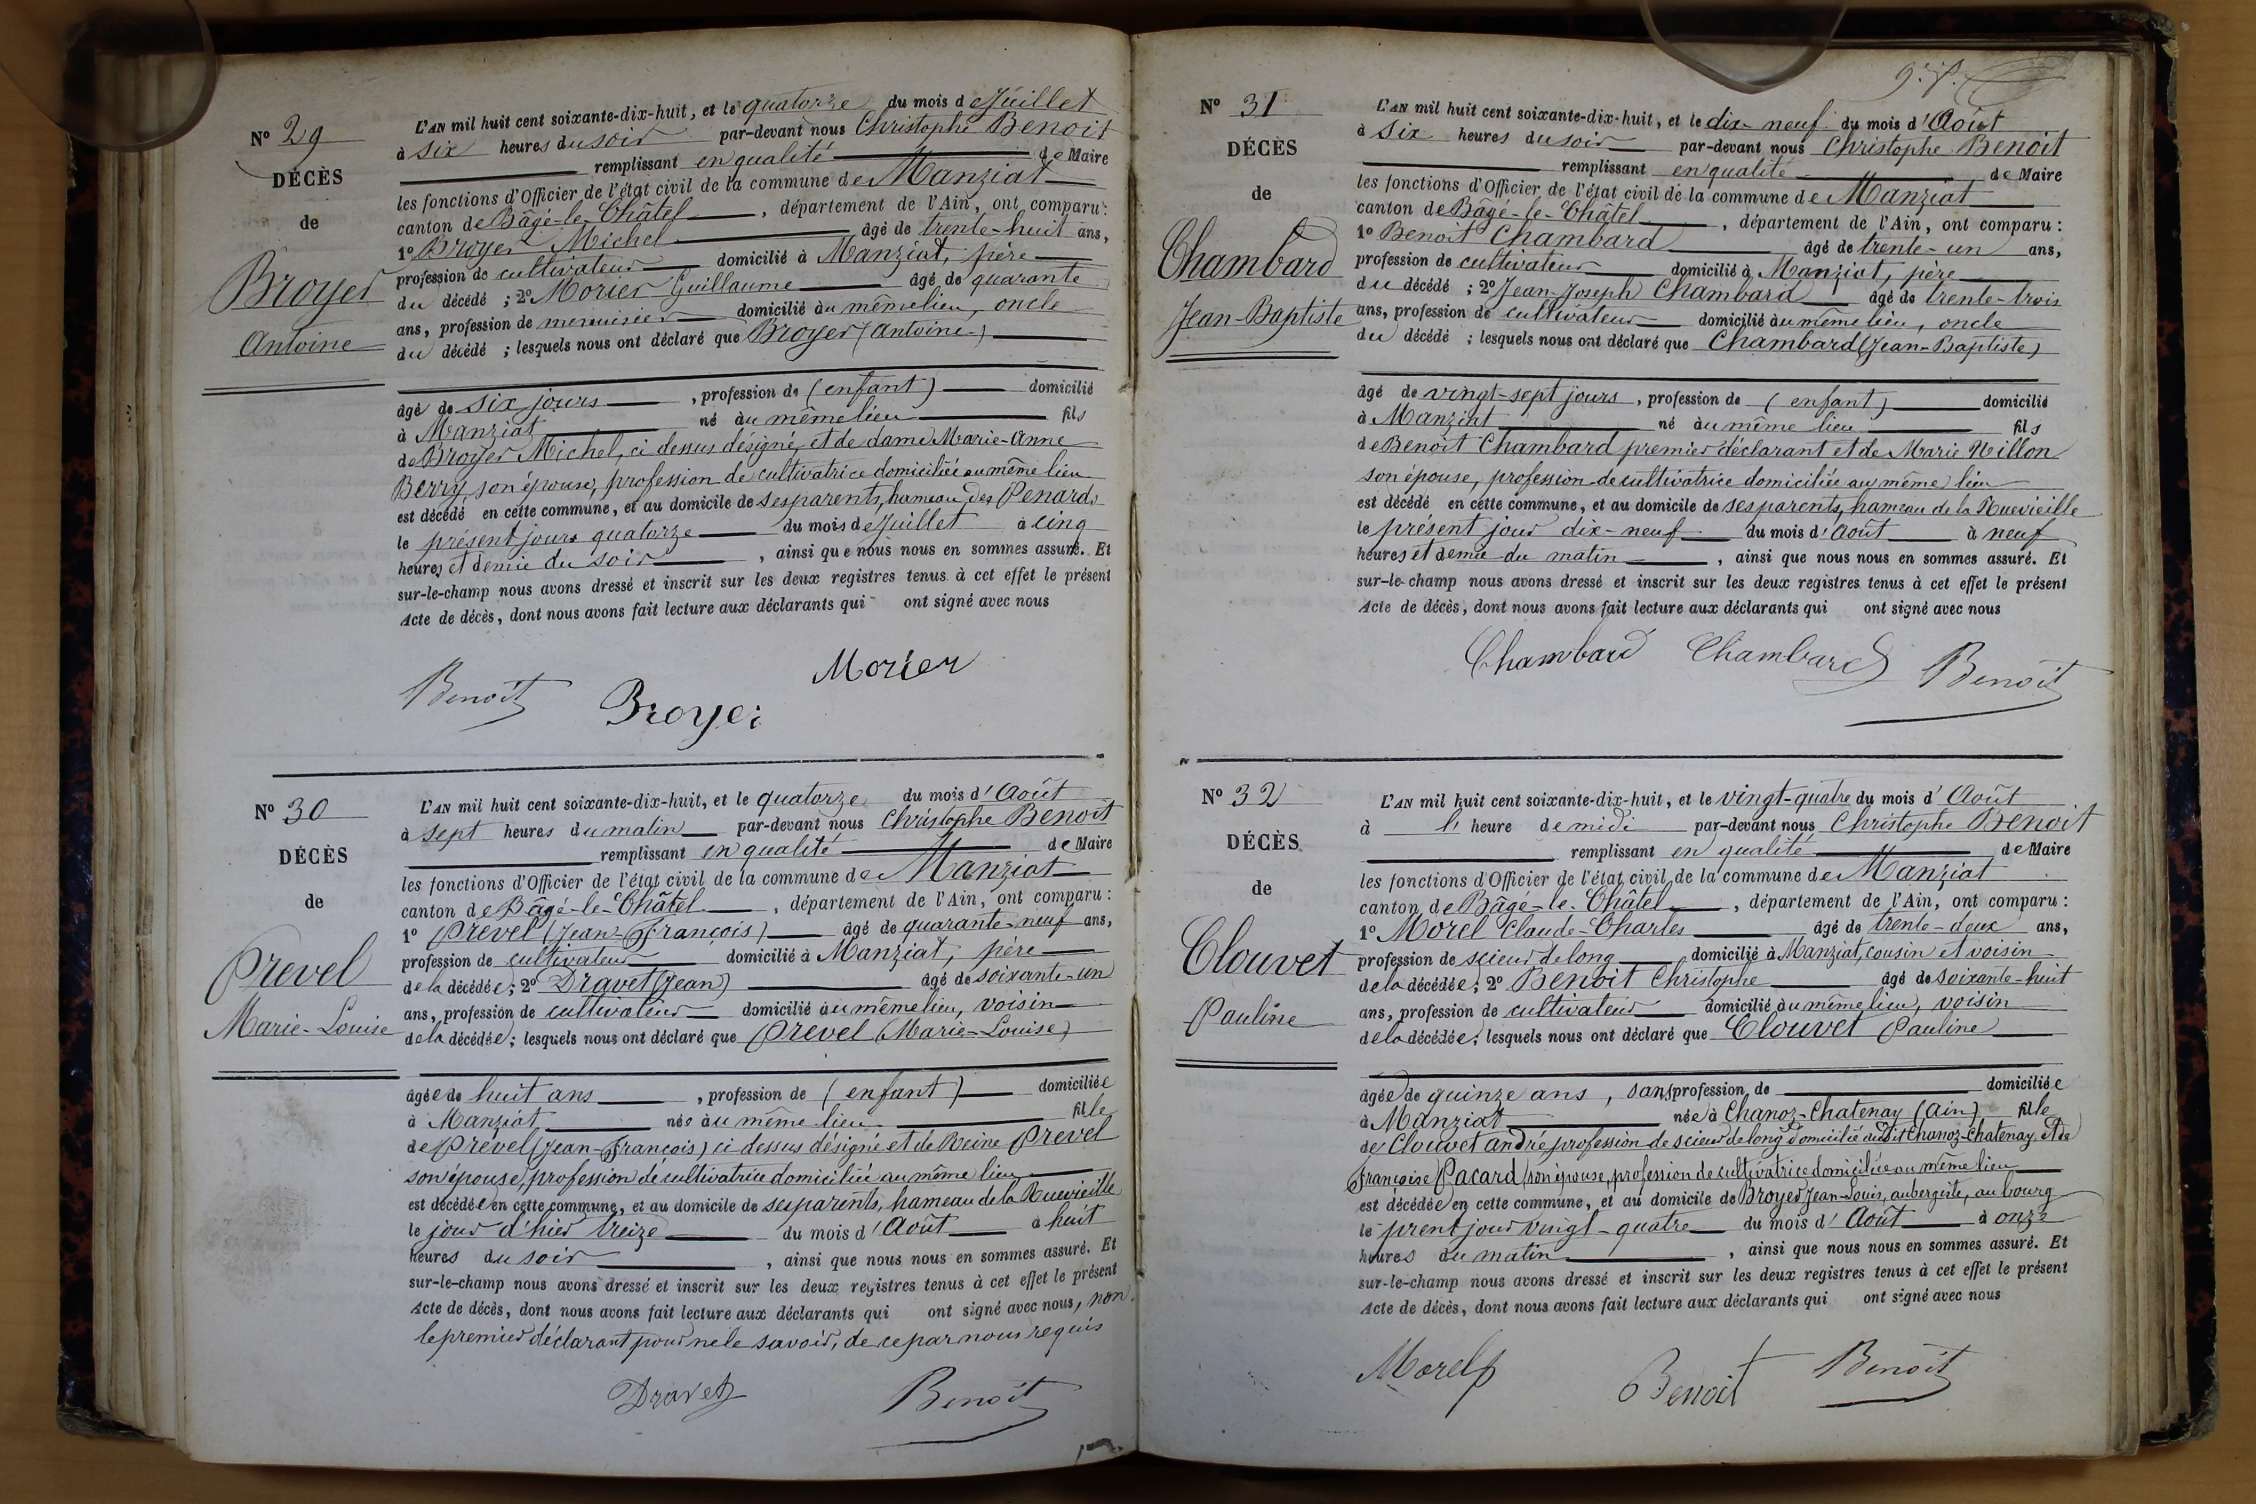 N° 29
DÉCÈS
de
Broyer
Antoine
L'AN mil huit cent soixante-dix-huit, et le quatorze du mois de Juillet
à six heures du soir par-devant nous Christophe Benoit
remplissant en qualité de Maire
les fonctions d'Officier de l'état civil de la commune de Manziat
canton de Bâgé-le-Châtel, département de l'Ain, ont comparu :
1° Broyer Michel âgé de trente-huit ans,
profession de cultivateur domicilié à Manziat, père
du décédé ; 2° Morier Guillaume âgé de quarante
ans, profession de menuisier domicilié au même lieu, oncle
du décédé ; lesquels nous ont déclaré que Broyer (Antoine)
âgé de six jours, profession de (enfant) domicilié
à Manziat né au même lieu fils
de Broyer Michel, ci dessus désigné, et de dame Marie-Anne
Berry, son épouse, profession de cultivatrice domiciliée au même lieu
est décédé en cette commune, et au domicile de ses parents, hameau des Penards
le présent jour quatorze du mois de Juillet à cinq
heures et demie du soir, ainsi que nous nous en sommes assuré. Et
sur-le-champ nous avons dressé et inscrit sur les deux registres tenus à cet effet le présent
Acte de décès, dont nous avons fait lecture aux déclarants qui ont signé avec nous
Morier
Benoît Broyer
N° 30
DÉCÈS
de
Prevel
Marie-Louise
L'AN mil huit cent soixante-dix-huit, et le quatorze du mois d'Août
à sept heures du matin par-devant nous Christophe Benoit
remplissant en qualité de Maire
les fonctions d'Officier de l'état civil de la commune de Manziat
canton de Bâgé-le-Châtel, département de l'Ain, ont comparu :
1° Prevel (Jean-François) âgé de quarante-neuf ans,
profession de cultivateur domicilié à Manziat, père
de la décédée ; 2° Dravet (Jean) âgé de soixante-un
ans, profession de cultivateur domicilié au même lieu, voisin
de la décédée ; lesquels nous ont déclaré que Prevel (Marie-Louise)
âgée de huit ans, profession de (enfant) domiciliée
à Manziat née au même lieu fille
de Prevel (Jean-François) ci dessus désigné et de Reine Prevel
son épouse, profession de cultivatrice domiciliée au même lieu
est décédée en cette commune, et au domicile de ses parents, hameau de la Ruevieille
le jour d'hier treize du mois d'Août à huit
heures du soir, ainsi que nous nous en sommes assuré. Et
sur-le-champ nous avons dressé et inscrit sur les deux registres tenus à cet effet le présent
Acte de décès, dont nous avons fait lecture aux déclarants qui ont signé avec nous, non
le premier déclarant pour ne le savoir, de ce par nous requis
Dravet Benoît
N° 31
DÉCÈS
de
Chambard
Jean-Baptiste
L'AN mil huit cent soixante-dix-huit, et le dix-neuf du mois d'Août
à six heures du soir par-devant nous Christophe Benoit
remplissant en qualité de Maire
les fonctions d'Officier de l'état civil de la commune de Manziat
canton de Bâgé-le-Châtel, département de l'Ain, ont comparu :
1° Benoit Chambard âgé de trente-un ans,
profession de cultivateur domicilié à Manziat, père
du décédé ; 2° Jean-Joseph Chambard âgé de trente-trois
ans, profession de cultivateur domicilié au même lieu, oncle
du décédé ; lesquels nous ont déclaré que Chambard (Jean-Baptiste)
âgé de vingt-sept jours, profession de (enfant) domicilié
à Manziat né au même lieu fils
de Benoit Chambard premier déclarant et de Marie Nillon
son épouse, profession de cultivatrice domiciliée au même lieu
est décédé en cette commune, et au domicile de ses parents, hameau de la Ruevieille
le présent jour dix-neuf du mois d'Août à neuf
heures et demie du matin, ainsi que nous nous en sommes assuré. Et
sur-le-champ nous avons dressé et inscrit sur les deux registres tenus à cet effet le présent
Acte de décès, dont nous avons fait lecture aux déclarants qui ont signé avec nous
Chambard Chambard Benoît
N° 32
DÉCÈS
de
Clouvet
Pauline
L'AN mil huit cent soixante-dix-huit, et le vingt-quatre du mois d'Août
à l' heure de midi par-devant nous Christophe Benoit
remplissant en qualité de Maire
les fonctions d'Officier de l'état civil de la commune de Manziat
canton de Bâgé-le-Châtel, département de l'Ain, ont comparu :
1° Morel Claude-Charles âgé de trente-deux ans,
profession de scieur de long domicilié à Manziat, cousin et voisin
de la décédée ; 2° Benoit Christophe âgé de soixante-huit
ans, profession de cultivateur domicilié au même lieu, voisin
de la décédée ; lesquels nous ont déclaré que Clouvet Pauline
âgée de quinze ans, sans profession de domiciliée
à Manziat née à Chanoz-Chatenay (Ain) fille
de Clouvet André profession de scieur de long domicilié audit Chanoz-Chatenay et de
Françoise Pacard, son épouse, profession de cultivatrice domiciliée au même lieu
est décédée en cette commune, et au domicile de Broyer Jean-Louis, aubergiste, au bourg
le prent jour vingt-quatre du mois d'Août à onze
heures du matin, ainsi que nous nous en sommes assuré. Et
sur-le-champ nous avons dressé et inscrit sur les deux registres tenus à cet effet le présent
Acte de décès, dont nous avons fait lecture aux déclarants qui ont signé avec nous
Morel Benoit Benoît